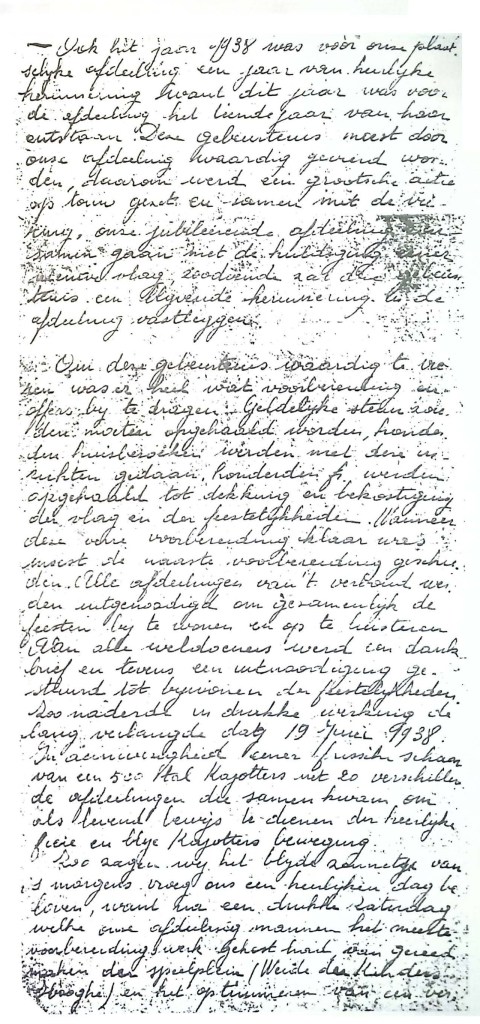 — Ook het jaar 1938 was voor onze plaat-
selijke afdeeling een jaar van heerlijke
herinnering want dit jaar was voor
de afdeeling het tiende jaar van haar
ontstaan. Deze gebeurtenis moest door
onze afdeeling waardig gevierd wor-
den, daarom werd een grootsche actie
op touw gezet en samen met de vie-
ring, onze jubileerende afdeeling
samen gaan met de huldiging eener
nieuwe vlag, zoodoende zal deze gebeur
tenis een blijvende herinnering in de
afdeeling vastleggen.
Om deze gebeurtenis waardig te vie-
ren was er heel wat voorbereiding en
offers bij te dragen. Geldelijke steun zou-
den moeten opgehaald worden, honder
den huisbezoeken werden met deze in-
zichten gedaan, honderden fr. werden
opgehaald tot dekking en bekostiging
der vlag en der feestelijkheden. Wanneer
deze verre voorbereiding klaar was
moest de naaste voorbereiding geschie
den. Alle afdeelingen van 't verbond wer
den uitgenoodigd om gezamenlijk de
feesten bij te wonen en op te luisteren
Aan alle weldoeners werd een dank
brief en tevens een uitnoodiging ge-
stuurd tot bijwonen der feestelijkheden.
Zoo naderde in drukke werking de
lang verlangde dag 19 Juni 1938.
In aanwezigheid eener frissche schaar
van een 500 tal Kajotters uit 20 verschillen
de afdeelingen die samen kwam om
als levend bewijs te dienen der heerlijke
fiere en blije Kajotters beweging.
Zoo zagen wij het blijde zonnetje van
's morgens vroeg ons een heerlijken dag be
loven, want na een drukke Zaterdag
welke onze afdeeling mannen het meeste
voorbereiding werk gekost had van gereed
maken der speelplein (Weide der Kinders
Hooghe) en het optimmeren van een ver-